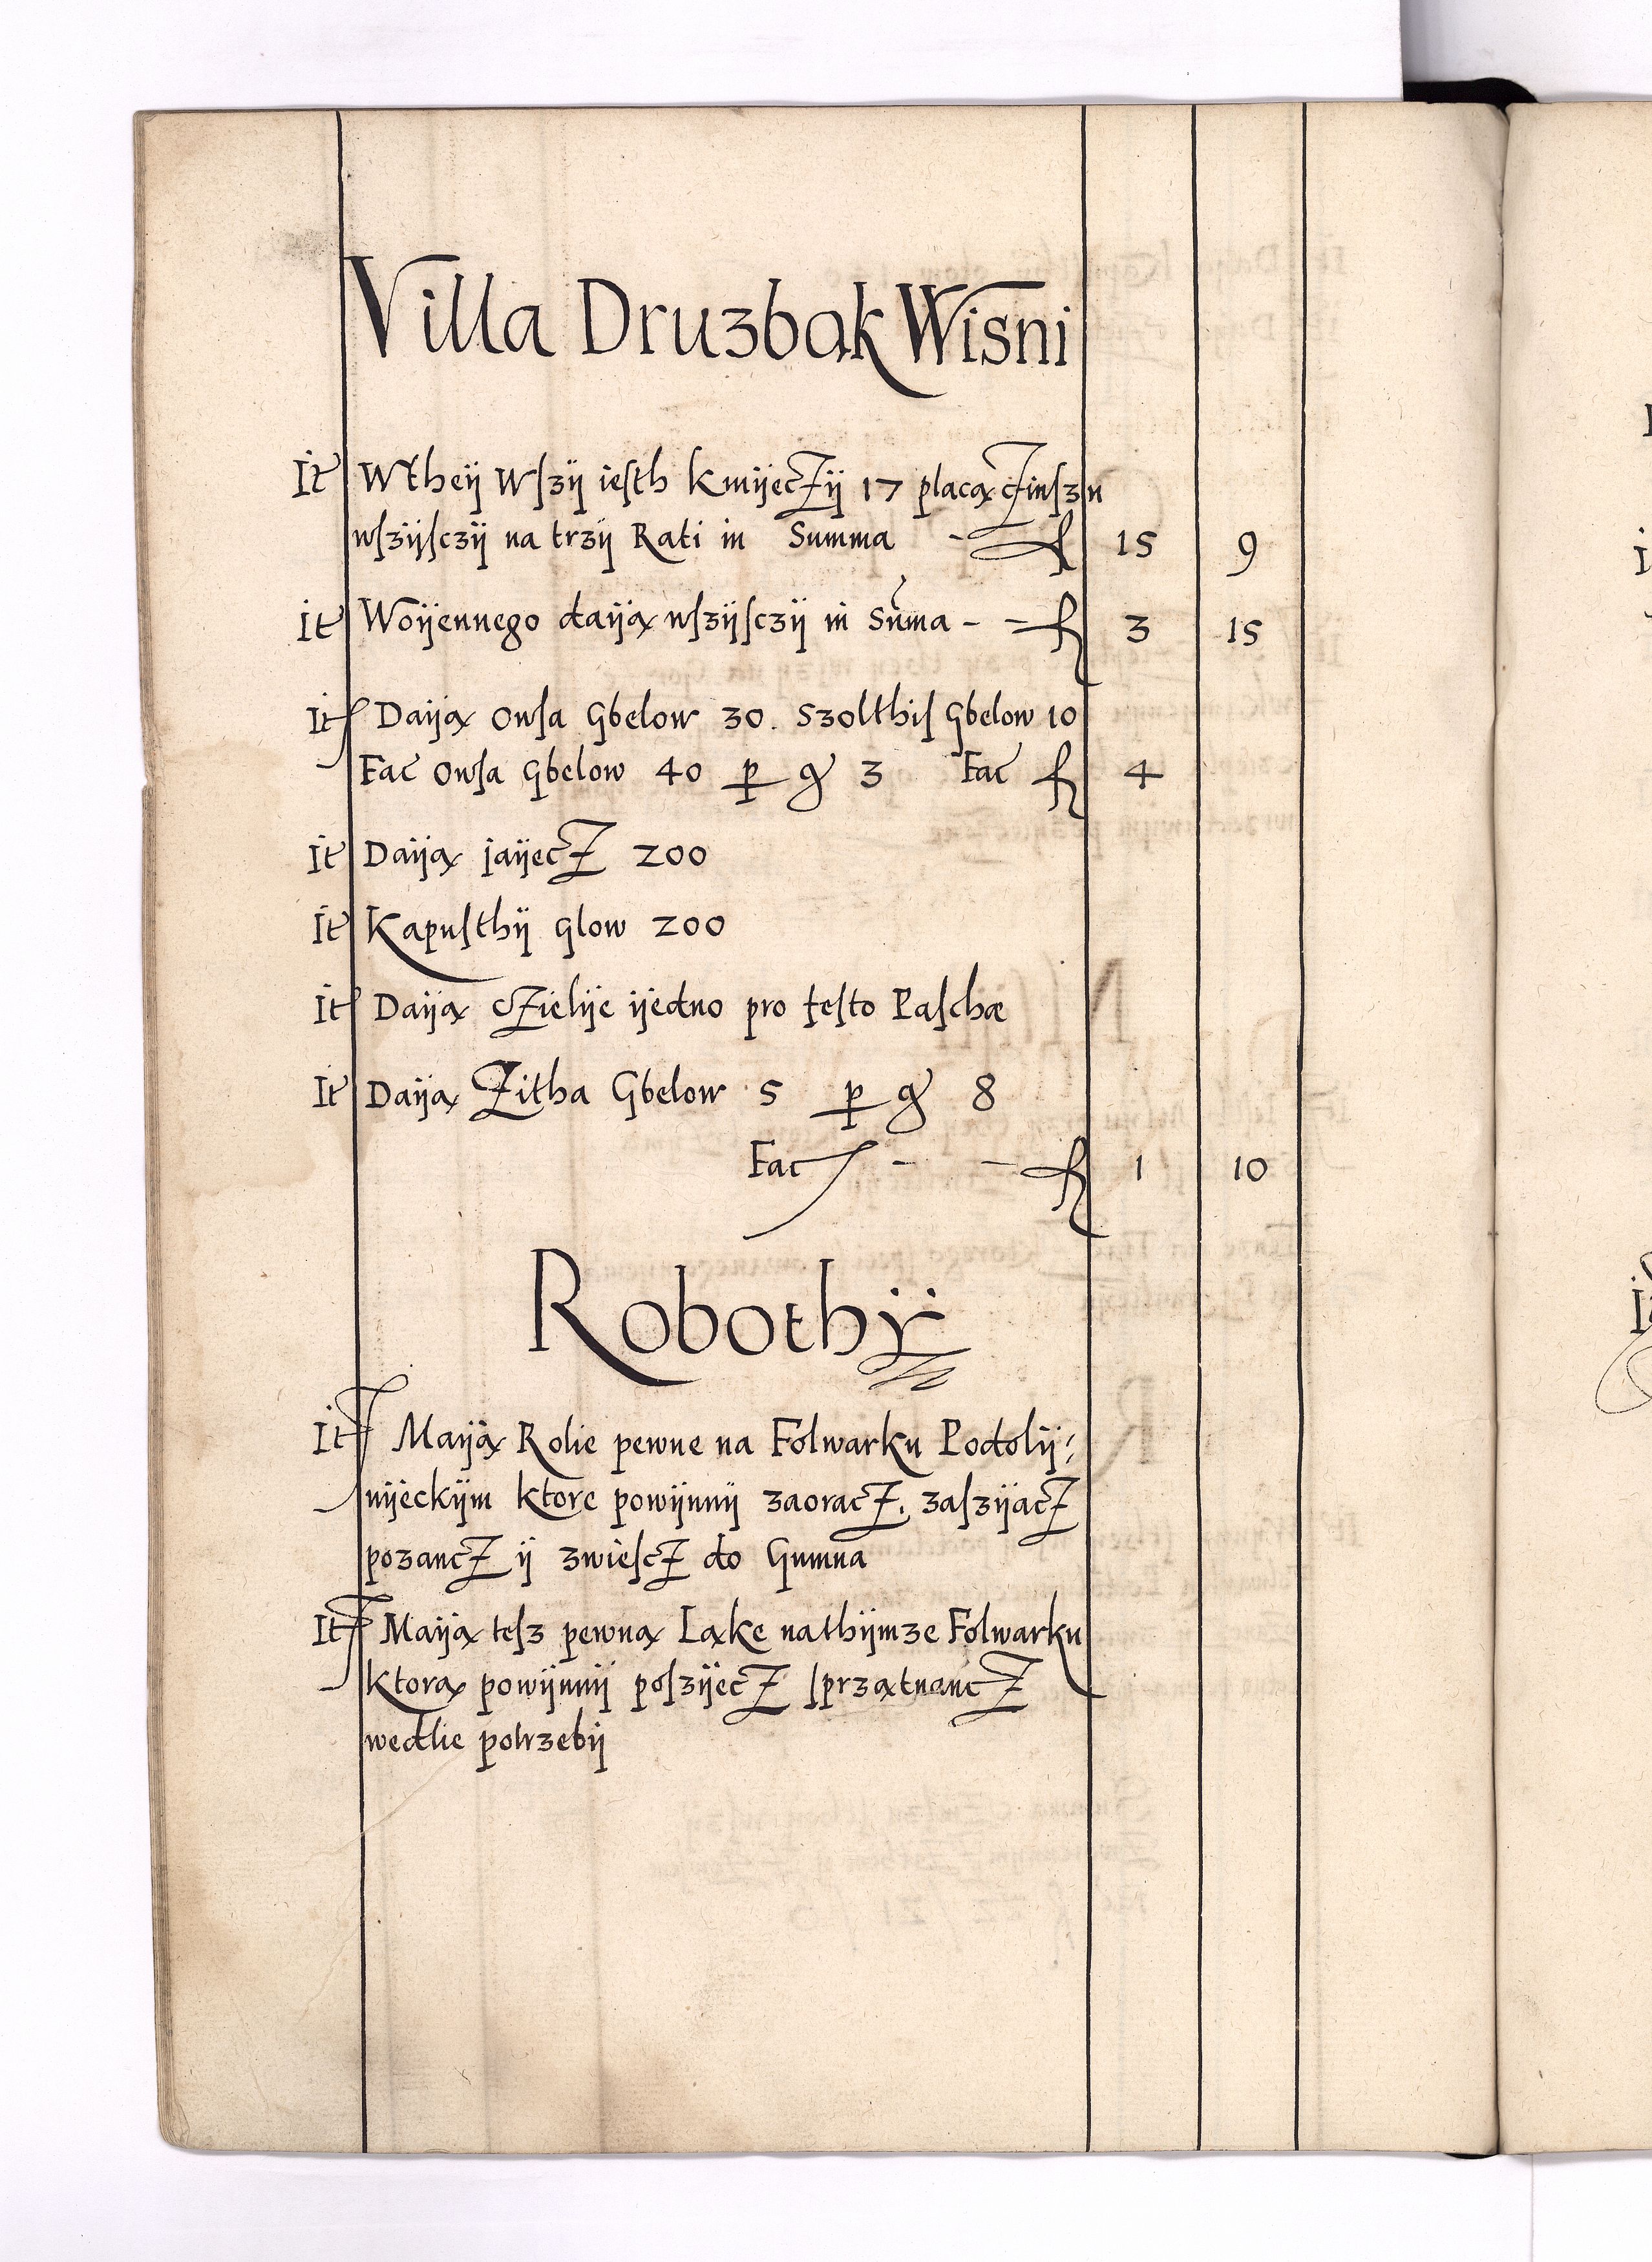 Villa Druzbak Wisni
It Wtheÿ Wſzÿ ieſth kmÿeczÿ 17 placą czinſzu
wſzÿſczÿ na trzÿ Rati in Summa - fl 15 9
It Woÿennego daÿą wſzÿſczÿ in Sum̃a - - fl 3 15
It Daÿą Owſa Gbelow 30. Szolthiſ Gbelow 10
Fac̃ Owſa Gbelow 40 p g 3 Fac̃ fl 4
It Daÿą jaÿecz 200
It Kapuſthÿ Glow 200
It Daÿą Czielÿe ÿedno pro feſto Paſchæ
It Daÿą Zitha Gbelow 5 p g 8
Fac - - fl 1 10
Robothÿ
It Maÿą Rolie pewne na Folwarku Podolÿ:
nÿeckÿm ktore powÿnnÿ zaoracz, zaſzÿacz
pozancz ÿ zwieſcz do Gumna
It Maÿą teſz pewną Ląke nathÿmze Folwarku
ktorą powÿnnÿ poſzÿecz ſprzątnąncz
wedlie potrzebÿ